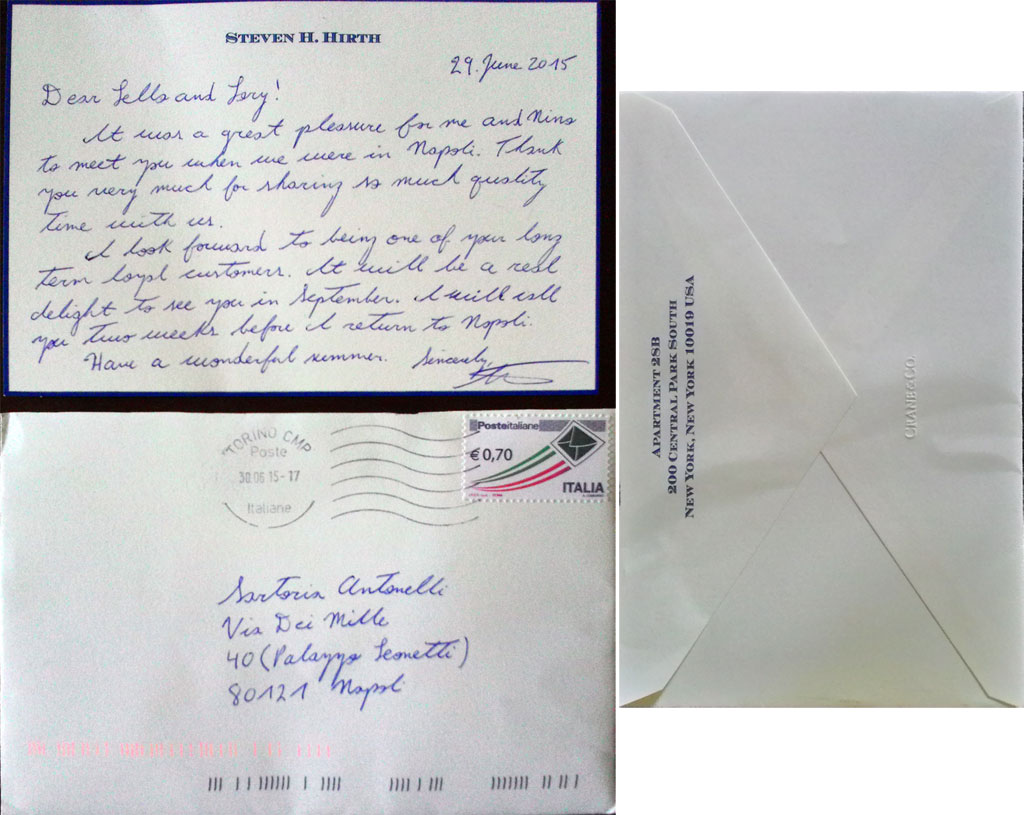 STEVEN H. HIRTH
29. June 2015
Dear Lello and Lory!
It was a great pleasure for me and Nina
to meet you when we were in Napoli. Thank
you very much for sharing so much quality
time with us.
I look forward to being one of your long
term loyal customers. It will be a real
delight to see you in September. I will call
you two weeks before I return to Napoli.
Have a wonderful summer. Sincerely
TORINO CMP
Poste
30.06.15-17
Italiane
Posteitaliane
€ 0,70
ITALIA
Sartoria Antonelli
Via Dei Mille
40 (Palazzo Leonetti)
80121 Napoli
APARTMENT 28B
200 CENTRAL PARK SOUTH
NEW YORK, NEW YORK 10019 USA
CRANE & CO.